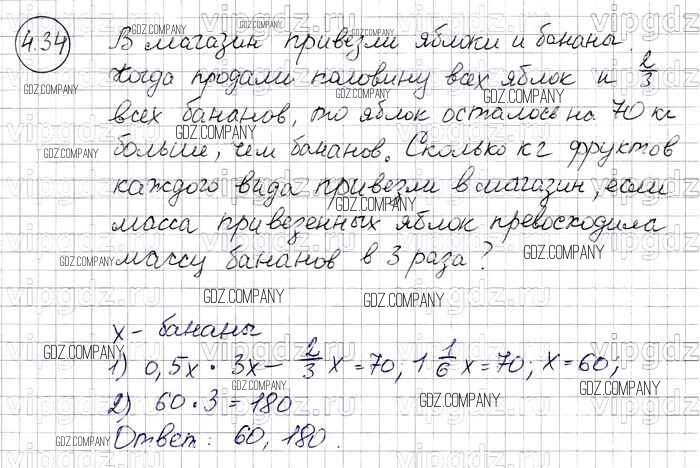 4.34 В магазин привезли яблоки и бананы.
Когда продали половину всех яблок и 2/3
всех бананов, то яблок осталось на 70 кг
больше, чем бананов. Сколько кг фруктов
каждого вида привезли в магазин, если
масса привезенных яблок превосходила
массу бананов в 3 раза?
x - бананы
1) 0,5x · 3x - 2/3 x = 70, 1 1/6 x = 70; x = 60;
2) 60 · 3 = 180
Ответ: 60, 180.
GDZ.COMPANY
vipgdz.ru